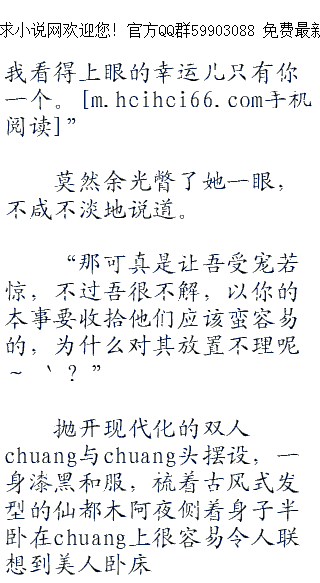 求小说网欢迎您！官方QQ群59903088 免费最新
我看得上眼的幸运儿只有你
一个。[m.hcihci66.com手机
阅读]”
莫然余光瞥了她一眼，
不咸不淡地说道。
“那可真是让吾受宠若
惊，不过吾很不解，以你的
本事要收拾他们应该蛮容易
的，为什么对其放置不理呢
～ ‵ ？”
抛开现代化的双人
chuang与chuang头摆设，一
身漆黑和服，梳着古风式发
型的仙都木阿夜侧着身子半
卧在chuang上很容易令人联
想到美人卧床